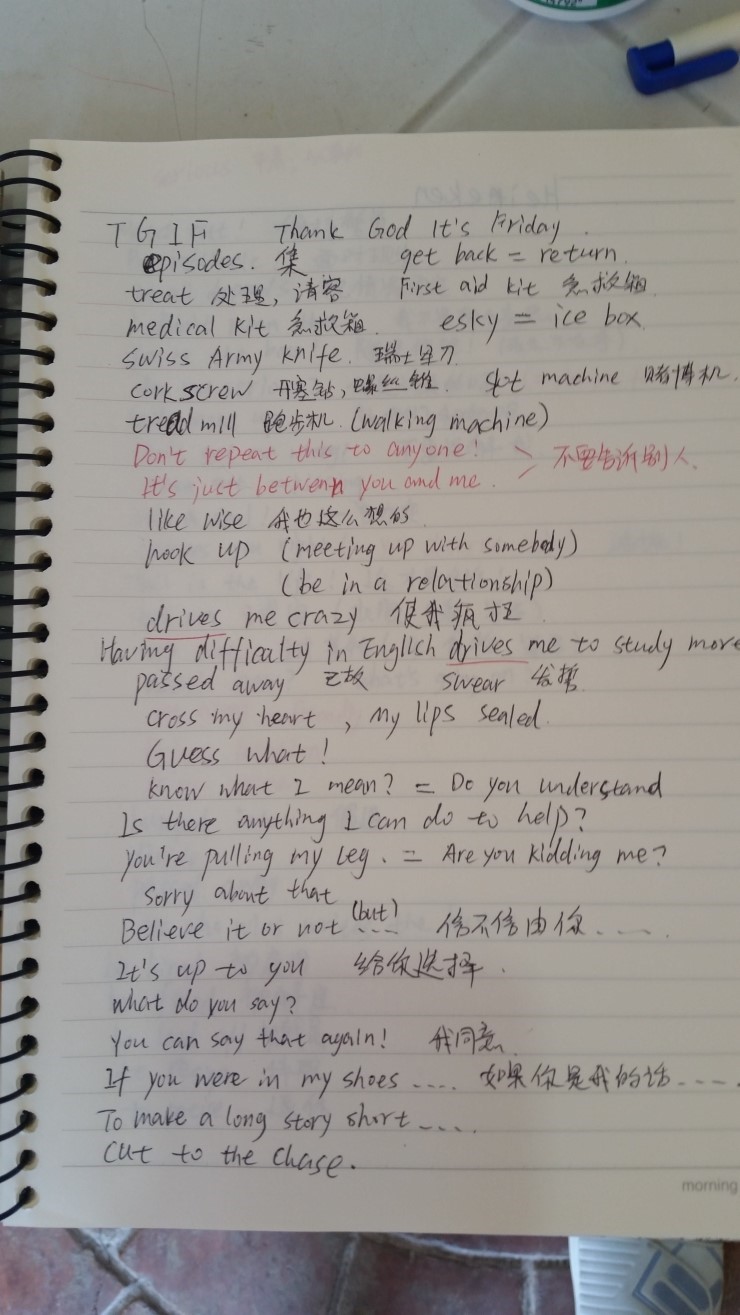 TGIF Thank God It's Friday.
episodes. 集 get back = return.
treat 处理, 请客 First aid kit 急救箱
medical kit 急救箱. esky = ice box
Swiss Army knife. 瑞士军刀
corkscrew 开塞钻, 螺丝锥. slot machine 赌博机.
treadmill 跑步机. (walking machine)
Don't repeat this to anyone! 不要告诉别人.
It's just between you and me.
like wise 我也这么想的
hook up (meeting up with somebody)
(be in a relationship)
drives me crazy 使我疯狂
Having difficalty in English drives me to study more
passed away 已故 swear 发誓
cross my heart, my lips sealed.
Guess what!
know what I mean? = Do you understand
Is there anything I can do to help?
you're pulling my leg. = Are you kidding me?
Sorry about that
Believe it or not (but).... 信不信由你.....
It's up to you 给你选择.
what do you say?
You can say that again! 我同意
If you were in my shoes .... 如果你是我的话....
To make a long story short....
Cut to the chase.
morning